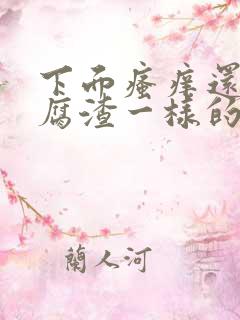 下而瘙痒還
腐渣一樣的
蘭人河